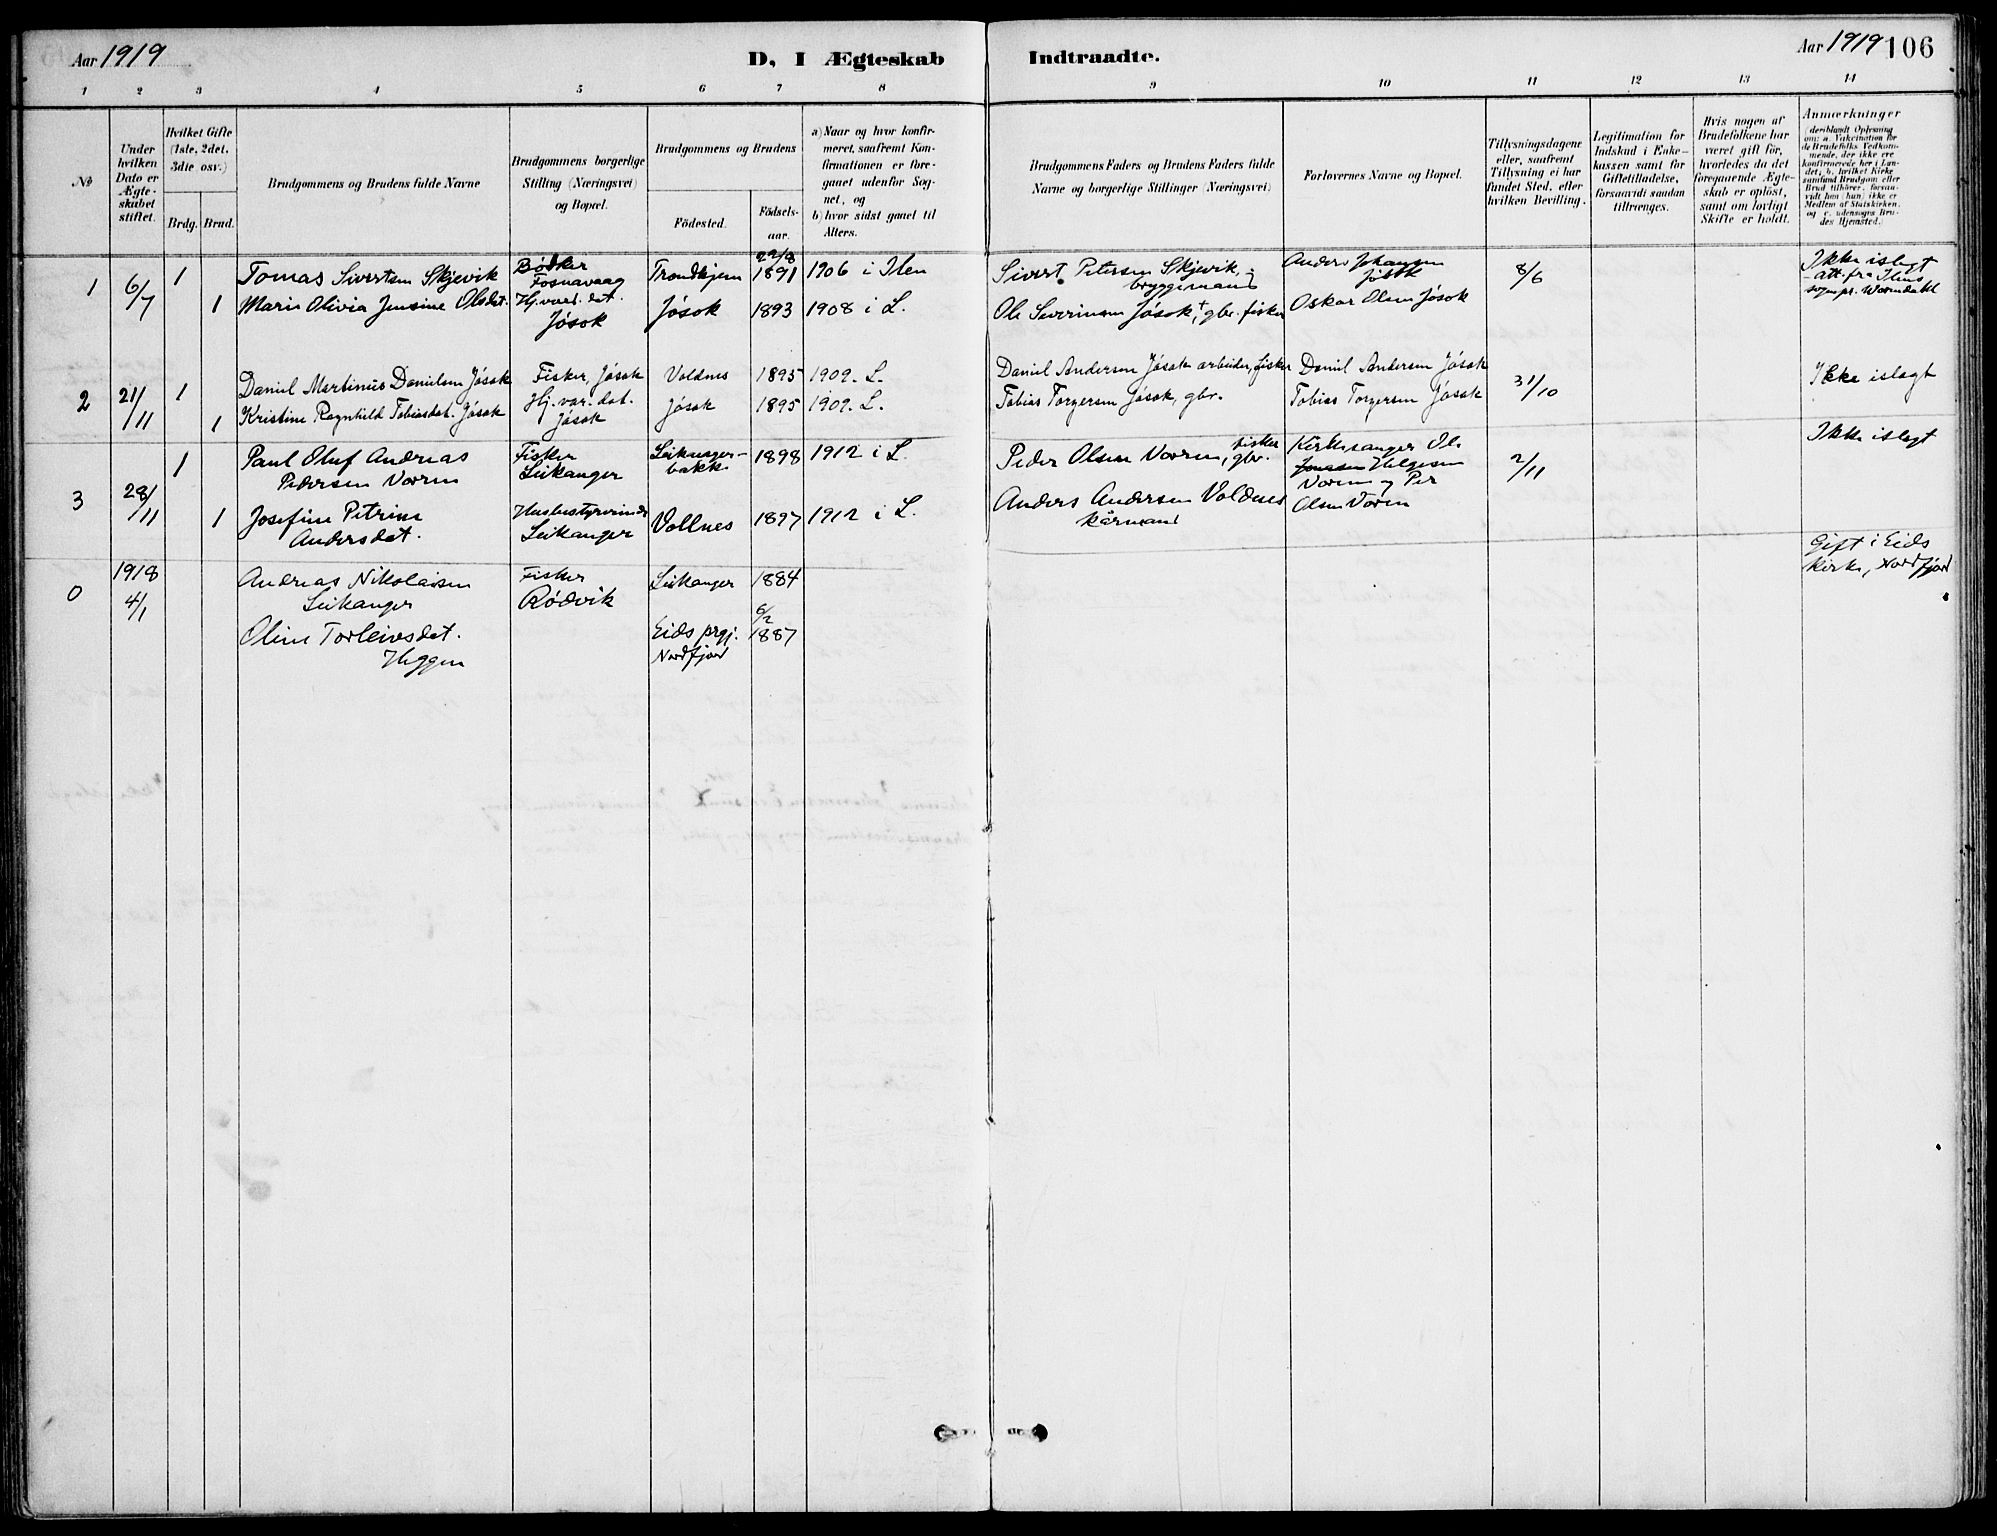 Aar 1919
D, I Ægteskab
Indtraadte.
Aar 1919 106
1 2 3 4 5 6 7 8 9 10 11 12 13 14
No
Under
hvilken
Dato er
Ægte-
skabet
stiftet.
Hvilket Gifte
(1ste, 2det,
3die osv.)
Brdg. Brud.
Brudgommens og Brudens fulde Navne
Brudgommens borgerlige
Stilling (Næringsvei)
og Bopæl.
Brudgommens og Brudens
Födested.
Födsels-
aar.
a) Naar og hvor konfir-
meret, saafremt Kon-
firmationen er fore-
gaaet udenfor Sog-
net, og
b) hvor sidst gaaet til
Alters.
Brudgommens Faders og Brudens Faders fulde
Navne og borgerlige Stillinger (Næringsvei)
Forlovernes Navne og Bopæl.
Tillysningsdagene
eller, saafremt
Tillysning ei har
fundet Sted, efter
hvilken Bevilling.
Legitimation for
Indskud i Enke-
kassen samt for
Giftetilladelse,
forsaavidt saadan
tiltrænges.
Hvis nogen af
Brudefolkene har
været gift för,
hvorledes da det
foregaaende Ægte-
skab er oplöst,
samt om lovligt
Skifte er holdt.
Anmærkninger
(deriblandt Oplysning
om: a. Vakcination for
de Brudefolks Vedkom-
mende, der ikke ere
konfirmerede her i Lan-
det; b. hvilket Kirke-
samfund Brudgom eller
Brud tilhörer, forsaa-
vidt han (hun) ikke er
Medlem af Statskirken,
og c. udensogns Bru-
des Hjemsted.)
1 6/7 1 Tomas Sivertsen Skjevik
Bødker
Fosnavaag
Trondhjem 22/8 1891 1906 i Ilen
Sivert Petersen Skjevik,
bryggemand
Anders Johansen
Jösok
8/6
Ikke islegt
att. fra Ilens
sognpr. Warmdahl
1 Marie Olivia Jensine Olsdet.
Hj.vær. det.
Jösok
Jösok 1893 1908 i L.
Ole Severinsen Jösok +, gbr. fisker
Oskar Olsen Jösok
2 21/11 1 Daniel Martinus Danielsen Jösok
Fisker, Jösok Voldnes 1895 1909. L.
Daniel Andersen Jösok arbeider, fisker
Daniel Andersen Jösok
31/10
Ikke islegt
1 Kristine Ragnhild Tobiasdet. Jösok
Hj. vær. det.
Jösok
Jösok 1895 1909. L.
Tobias Torgersen Jösok, gbr.
Tobias Torgersen Jösok
3 28/11 1 Paul Oluf Andreas
Pedersen Voren
Fisker
Leikanger
Leikanger-
bakk
1898 1912 i L.
Peder Olsen Voren, fisker gbr.
Kirkesanger Ole
Jonassen Helgesen
Voren og Per
Olsen Voren
2/11
Ikke islegt
1 Josefine Petrine
Andersdet.
Husbestyrerinde
Leikanger
Vollnes 1897 1912 i L.
Anders Andersen Voldnes
kårmand
0 1918 4/1
Andreas Nikolaisen
Leikanger
Fisker
Rödvik
Leikanger 1884
Gift i Eids
kirke, Nordfjord
Oline Torleivsdet.
Heggen
Eids prgj.
Nordfjord
6/2 1887